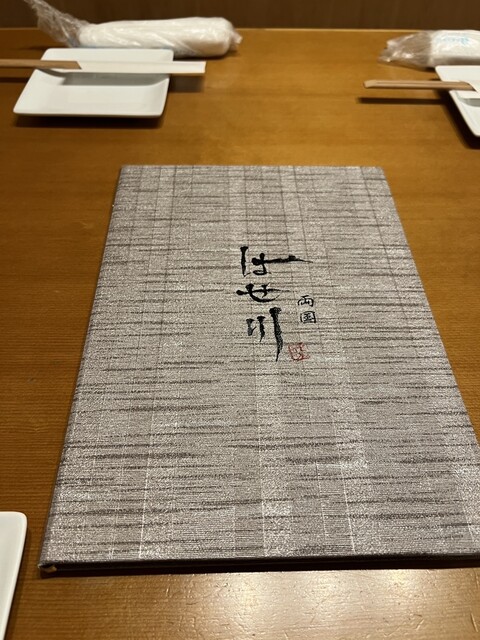 はせ川
両国